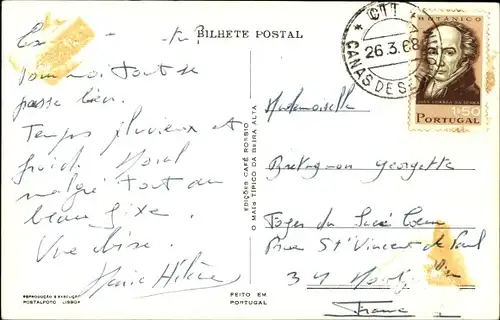 BILHETE POSTAL
Pour moi tout se
passe bien.
Temps pluvieux et
froid. Moral
malgré tout au
beau fixe.
Une bise.
Marie Hélène
REPRODUÇÃO E EXECUÇÃO
POSTALFOTO LISBOA
FEITO EM
PORTUGAL
EDIÇÕES CAFÉ ROSSIO
O MAIS TÍPICO DA BEIRA ALTA
CTT
26.3.68
CANAS DE SEN
BOTÂNICO
JOSÉ CORREA DA SERRA
1$50
PORTUGAL
Mademoiselle
Bretagnon Georgette
Foyer du Sacré Coeur
Rue St Vincent de Paul
34
France